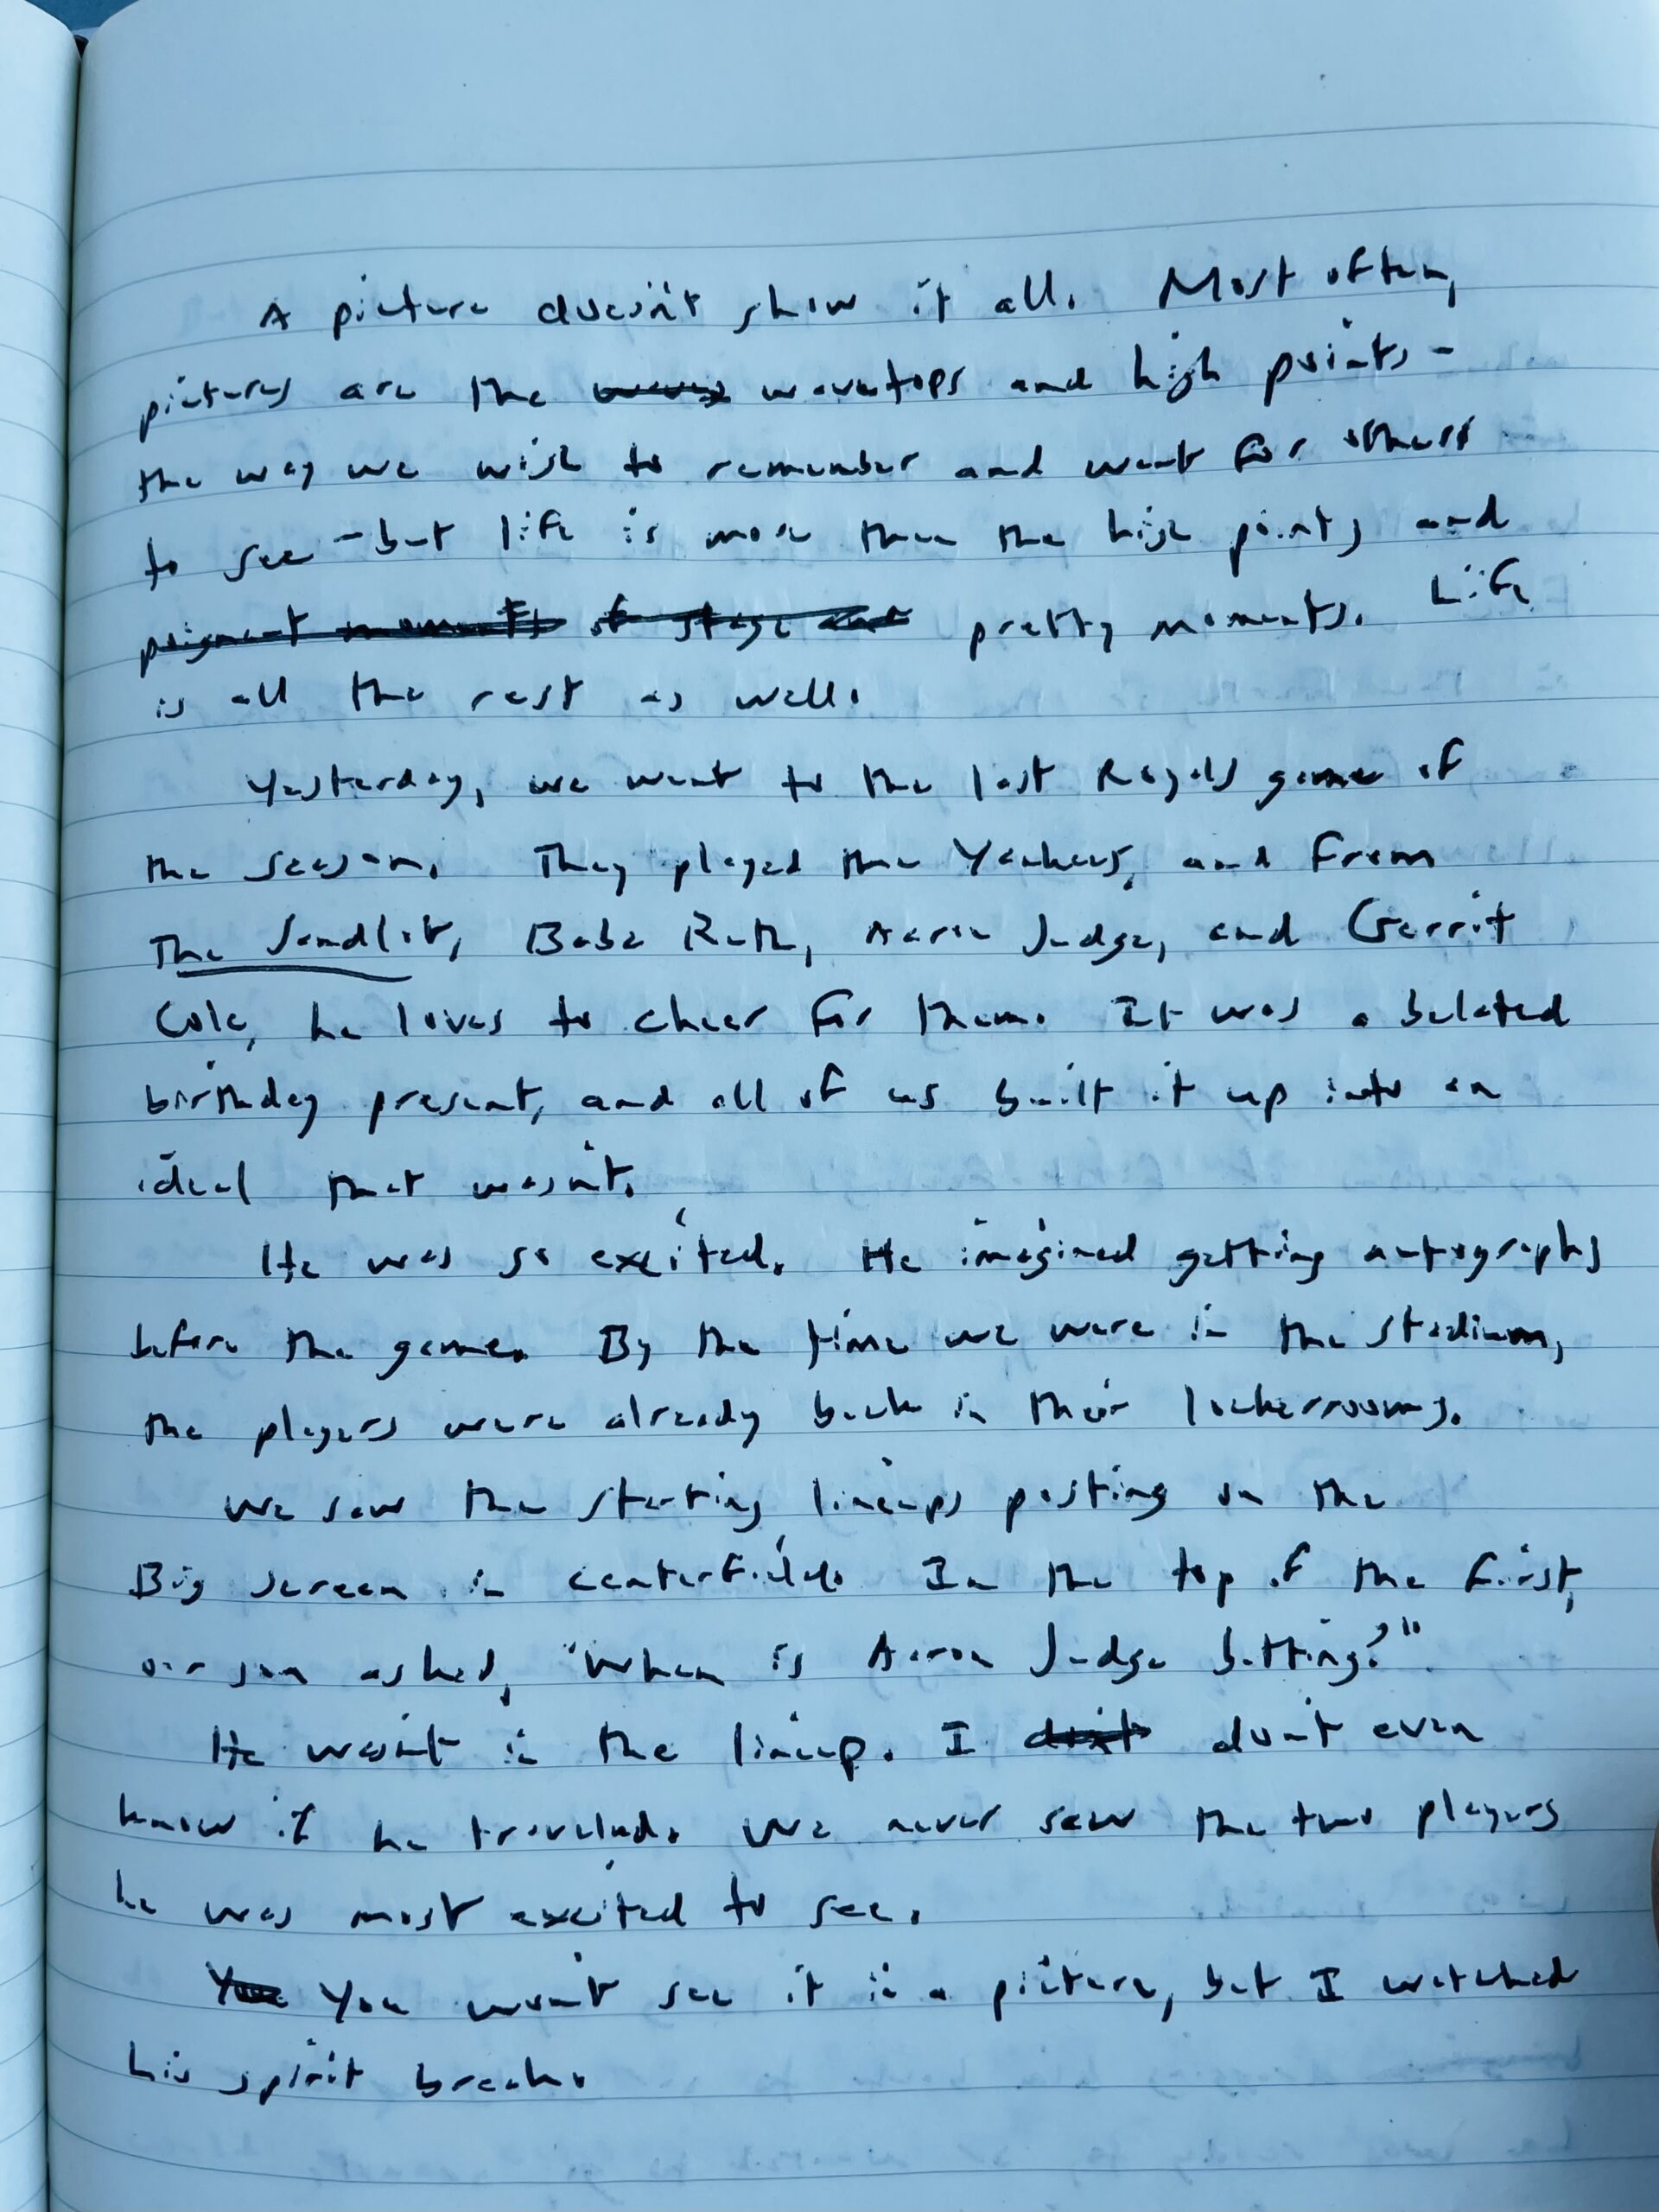 A picture doesn't show it all. Most often,
pictures are the wavetops and high points -
the way we wish to remember and want for others
to see - but life is more than the high points and
poignant moments of stage and pretty moments. Life
is all the rest as well.
Yesterday, we went to the last Royals game of
the season. They played the Yankees, and from
The Sandlot, Babe Ruth, Aaron Judge, and Gerrit
Cole, he loves to cheer for them. It was a belated
birthday present, and all of us built it up into an
ideal that wasn't.
He was so excited. He imagined getting autographs
before the game. By the time we were in the stadium,
the players were already back in their lockerrooms.
We saw the starting lineups posting on the
Big screen in centerfield. In the top of the first,
our son asked, "When is Aaron Judge batting?"
He wasn't in the lineup. I don't even
know if he traveled. We never saw the two players
he was most excited to see.
You You won't see it in a picture, but I watched
his spirit break.